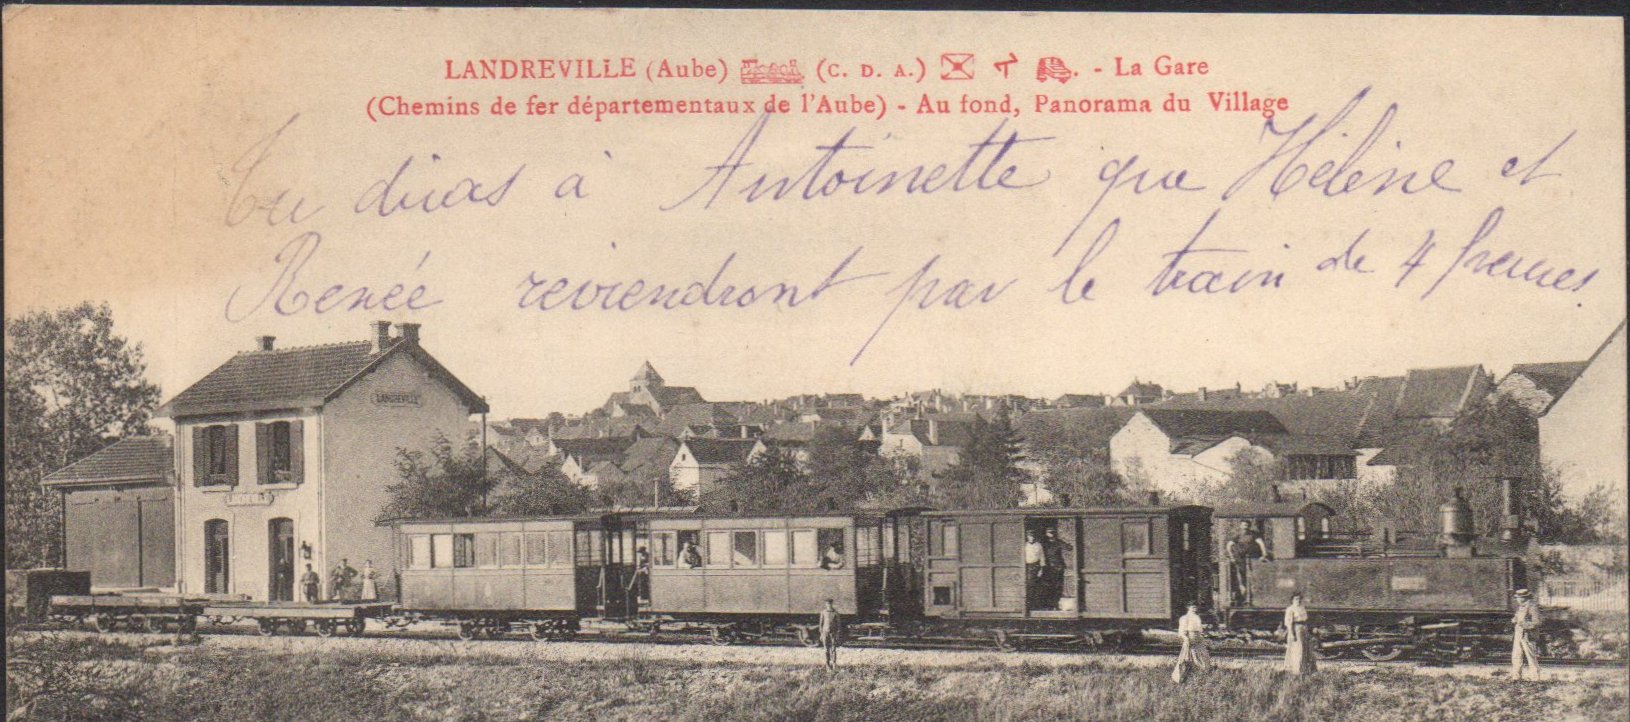 LANDREVILLE (Aube) (C. D. A.) - La Gare
(Chemins de fer départementaux de l'Aube) - Au fond, Panorama du Village
Tu diras à Antoinette que Hélène et
Renée reviendront par le train de 4 heures.
LANDREVILLE